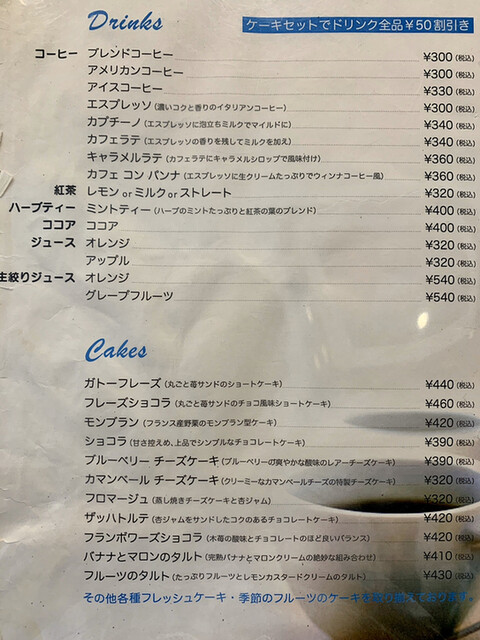 Drinks ケーキセットでドリンク全品¥50割引き
コーヒー ブレンドコーヒー ¥300(税込)
アメリカンコーヒー ¥300(税込)
アイスコーヒー ¥330(税込)
エスプレッソ(濃いコクと香りのイタリアンコーヒー) ¥300(税込)
カプチーノ(エスプレッソに泡立ちミルクでマイルドに) ¥340(税込)
カフェラテ(エスプレッソの香りを残してミルクを加え) ¥340(税込)
キャラメルラテ(カフェラテにキャラメルシロップで風味付け) ¥360(税込)
カフェ コン パンナ(エスプレッソに生クリームたっぷりでウィンナコーヒー風) ¥360(税込)
紅茶 レモン or ミルク or ストレート ¥320(税込)
ハーブティー ミントティー(ハーブのミントたっぷりと紅茶の葉のブレンド) ¥400(税込)
ココア ココア ¥400(税込)
ジュース オレンジ ¥320(税込)
アップル ¥320(税込)
生絞りジュース オレンジ ¥540(税込)
グレープフルーツ ¥540(税込)
Cakes
ガトーフレーズ(丸ごと苺サンドのショートケーキ) ¥440(税込)
フレーズショコラ(丸ごと苺サンドのチョコ風味ショートケーキ) ¥460(税込)
モンブラン(フランス産野栗のモンブラン型ケーキ) ¥420(税込)
ショコラ(甘さ控えめ、上品でシンプルなチョコレートケーキ) ¥390(税込)
ブルーベリー チーズケーキ(ブルーベリーの爽やかな酸味のレアーチーズケーキ) ¥390(税込)
カマンベール チーズケーキ(クリーミーなカマンベールチーズの特製チーズケーキ) ¥320(税込)
フロマージュ(蒸し焼きチーズケーキと杏ジャム) ¥320(税込)
ザッハトルテ(杏ジャムをサンドしたコクのあるチョコレートケーキ) ¥420(税込)
フランボワーズショコラ(木苺の酸味とチョコレートのほど良いバランス) ¥420(税込)
バナナとマロンのタルト(完熟バナナとマロンクリームの絶妙な組み合わせ) ¥410(税込)
フルーツのタルト(たっぷりフルーツとレモンカスタードクリームのタルト) ¥430(税込)
その他各種フレッシュケーキ・季節のフルーツのケーキを取り揃えております。